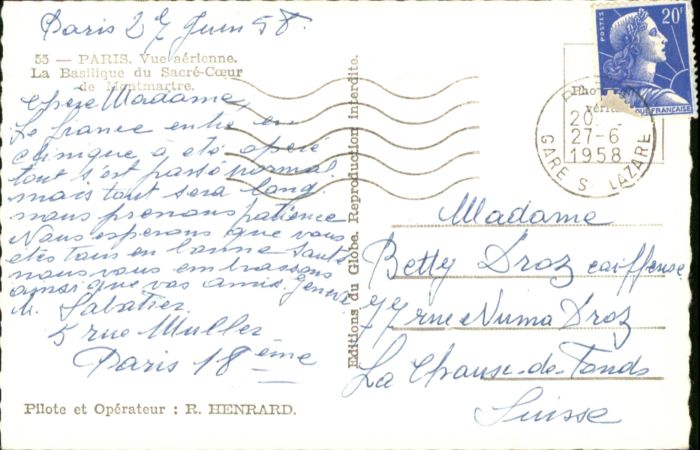 Paris 27 Juin 58.
55 — PARIS. Vue aérienne.
La Basilique du Sacré-Cœur
de Montmartre.
Chère Madame,
Le france entre en
clinique, à été opéré
tout s'est passé normal
mais tout sera long.
nous prenons patience
Nous esperons que vous
etes tous en bonne santé
nous vous embrassons
ainsi que vos amis,
M. Sabatier
5 rue Muller
Paris 18 ème
Pilote et Opérateur : R. HENRARD.
Editions du Globe. Reproduction interdite.
POSTES
20F
QUE FRANÇAISE
Pho
vérita
20
27-6
1958
GARE S LAZARE
Madame
Betty Droz coiffeuse
77 rue Numa Droz
La Chause-de-Fonds
Suisse